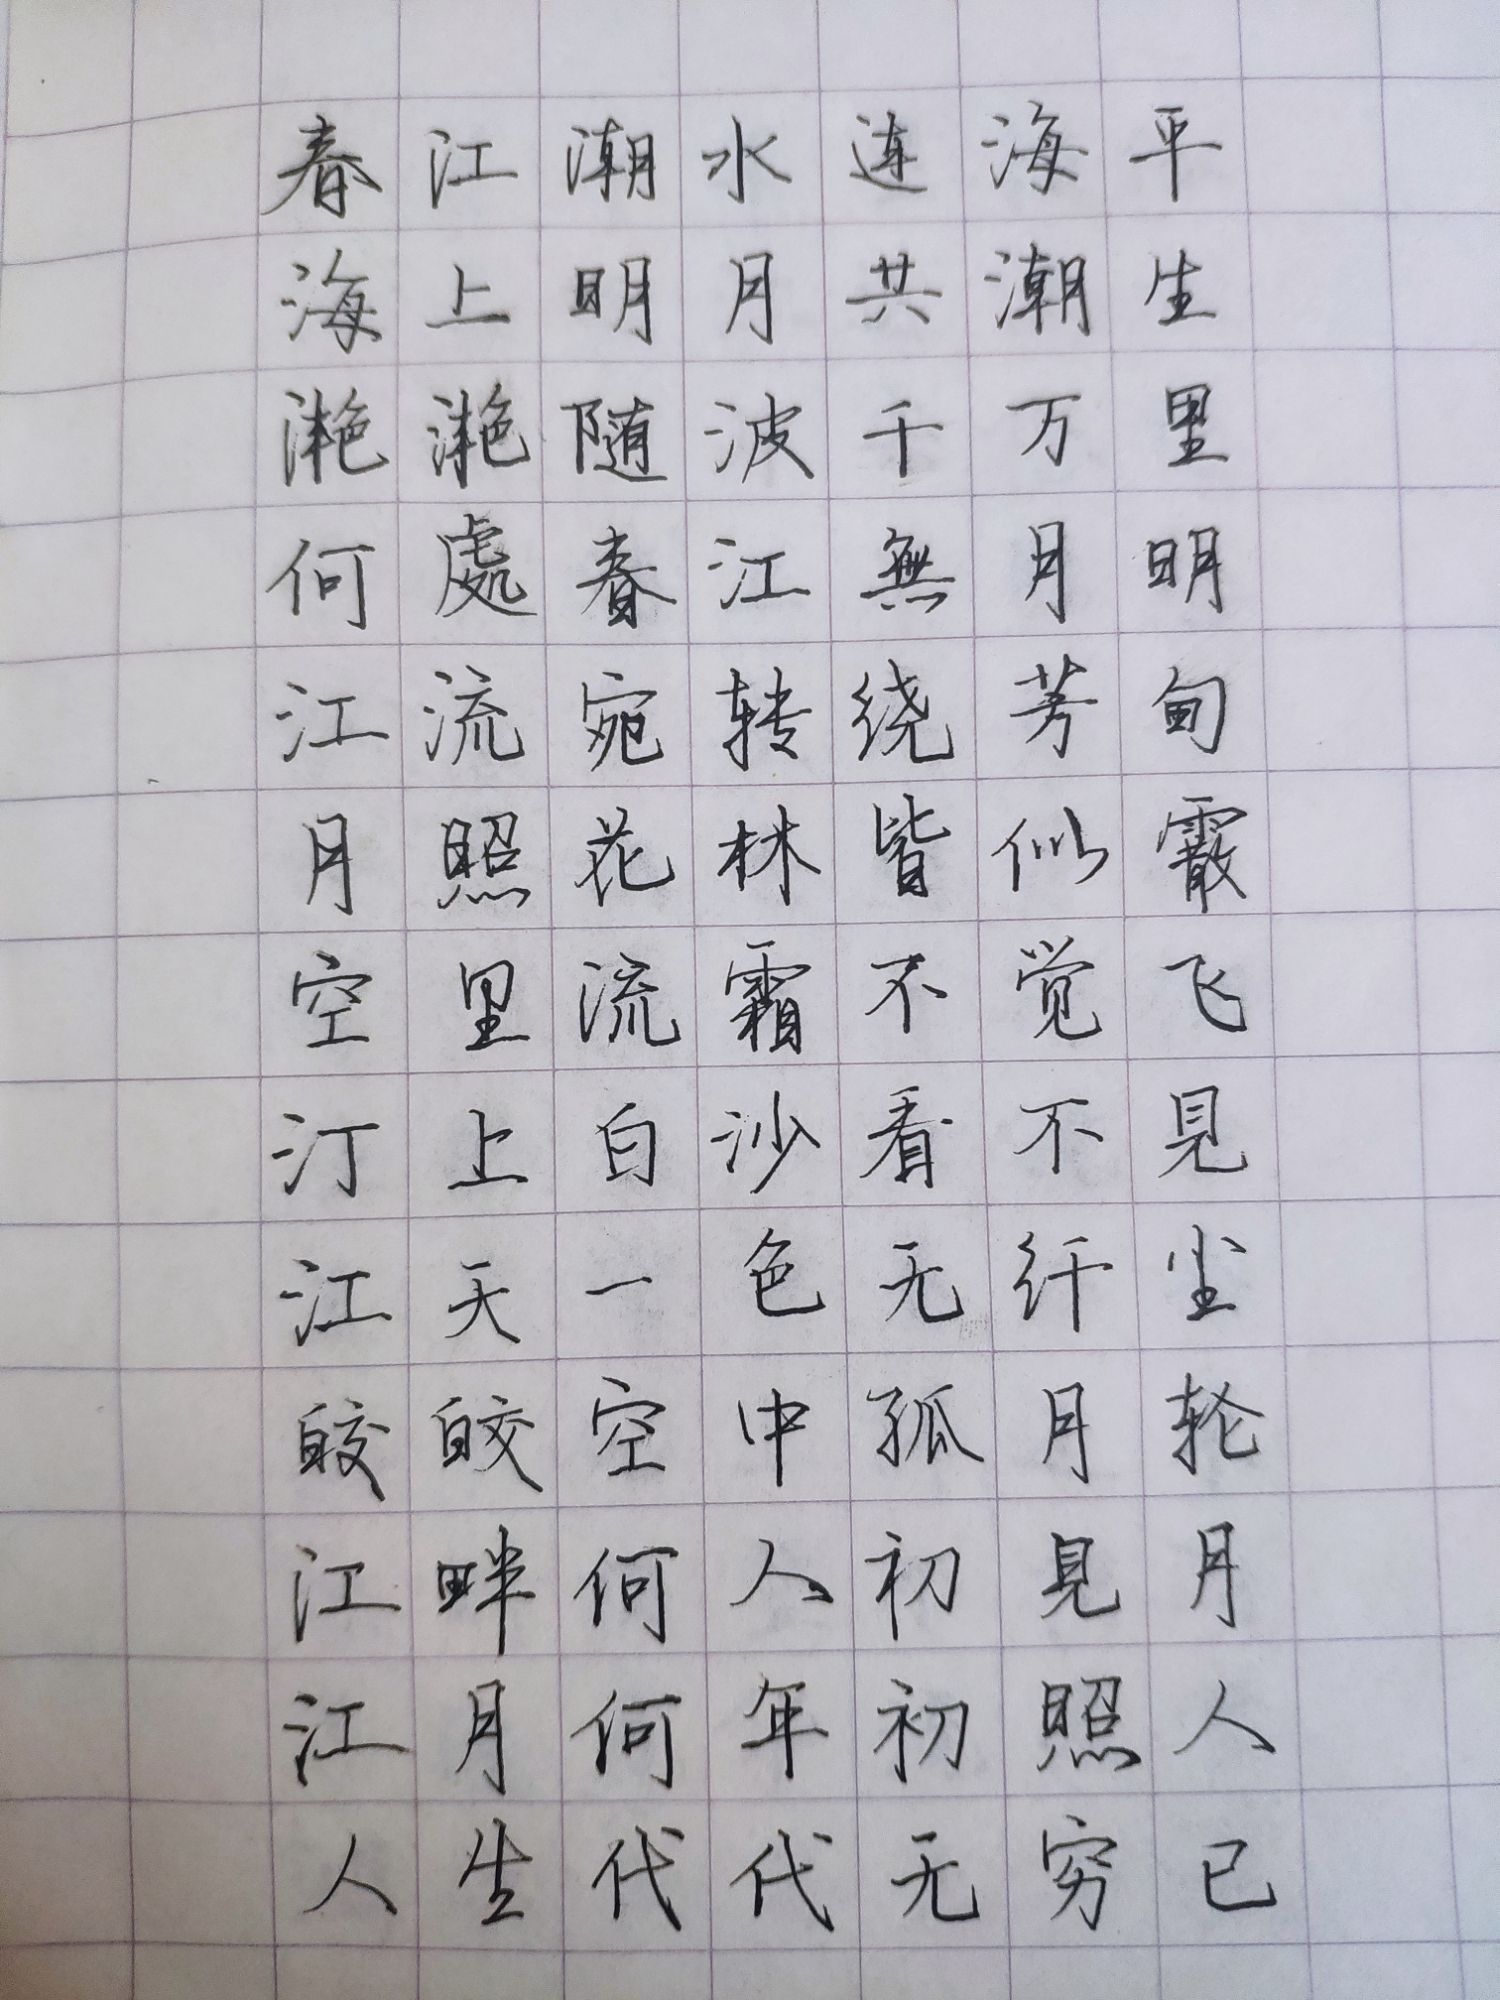 春江潮水连海平
海上明月共潮生
滟滟随波千万里
何處春江無月明
江流宛转绕芳甸
月照花林皆似霰
空里流霜不觉飞
汀上白沙看不見
江天一色无纤尘
皎皎空中孤月轮
江畔何人初見月
江月何年初照人
人生代代无穷已